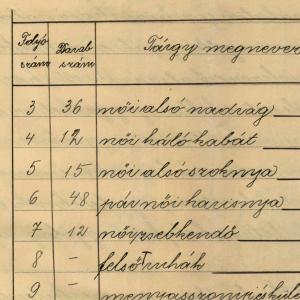 Folyó szám Darab szám Tárgy megnever
3 36 női alsó nadrág
4 12 női háló kabát
5 15 női alsó szoknya
6 48 pár női harisnya
7 12 női zsebkendő
8 - felső ruhák
9 - menyasszonyi